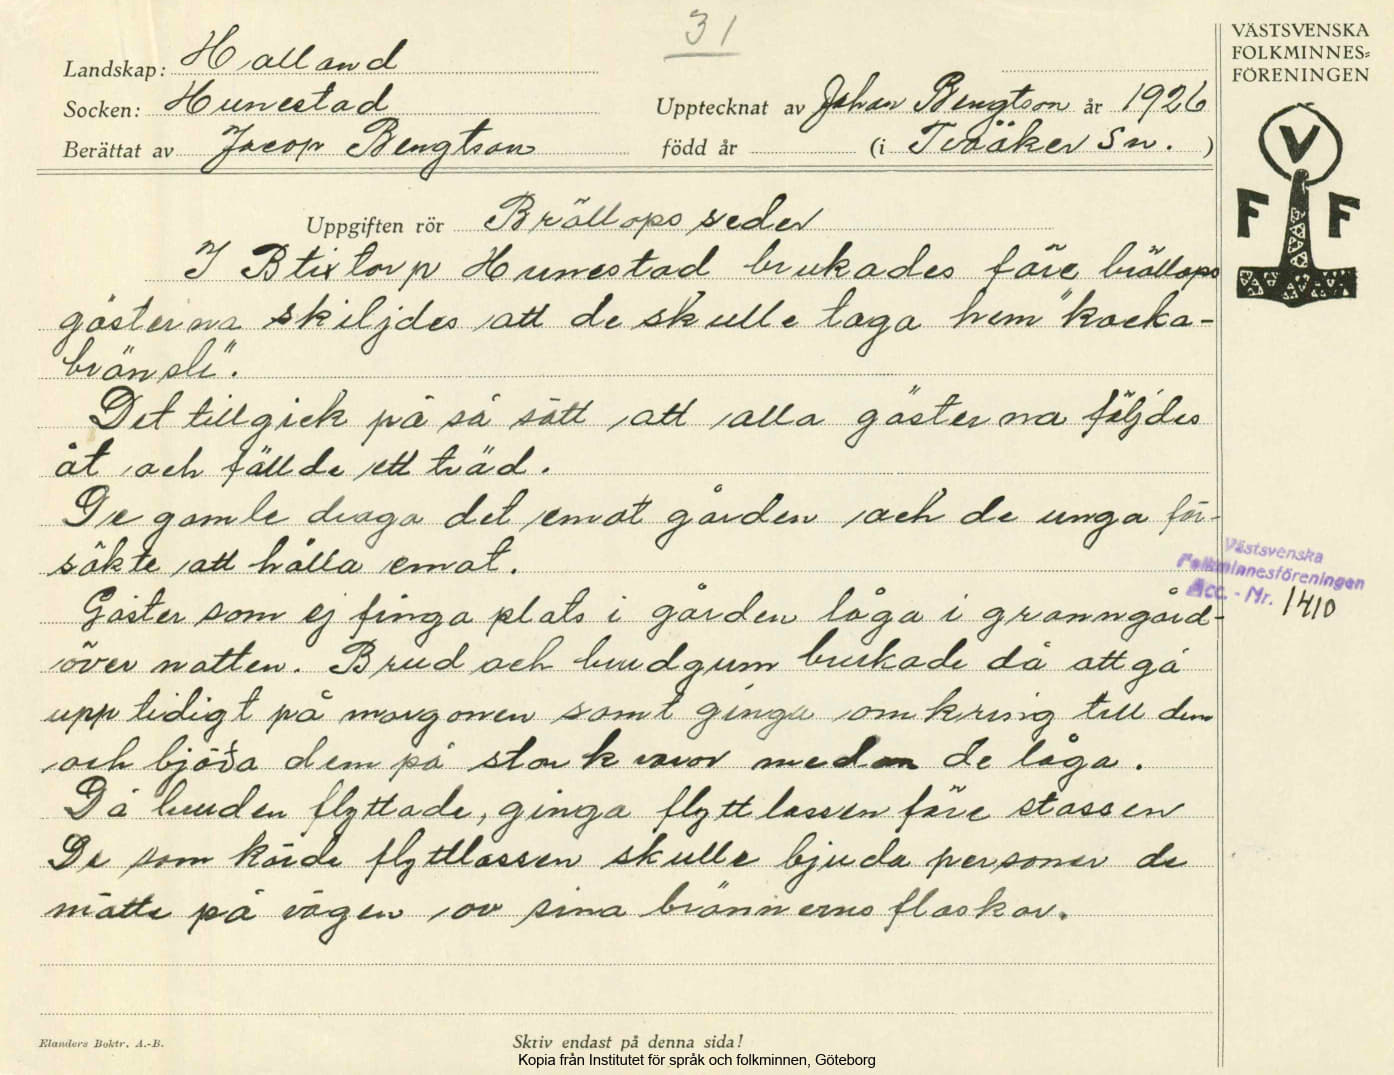 31
VÄSTSVENSKA
FOLKMINNES=
FÖRENINGEN
V
F F
Landskap: Halland
Socken: Hunestad
Upptecknat av Johan Bengtson år 1926
Berättat av Jacop Bengtson född år (i Tvååker Sn. )
Uppgiften rör Bröllops seder
I Btixtorp Hunestad brukades före bröllops
gästerna skiljdes att de skulle taga hem "kacka-
bränsle".
Det tillgick på så sätt att alla gästerna följdes
åt och fällde ett träd.
De gamle draga det emot gården och de unga för-
sökte att hålla emot.
Gäster som ej finga plats i gården låga i granngård-
över natten. Brud och brudgum brukade då att gå
upp tidigt på morgonen samt ginga omkring till dem
och bjöda dem på stark varor medan de låga.
Då bruden flyttade, ginga flyttlassen före stassen
De som körde flyttlassen skulle bjuda personer de
mötte på vägen av sina brännvins flaskor.
Västsvenska
Folkminnesföreningen
Acc. - Nr. 1410
Elanders Boktr. A.-B.
Skriv endast på denna sida!
Kopia från Institutet för språk och folkminnen, Göteborg